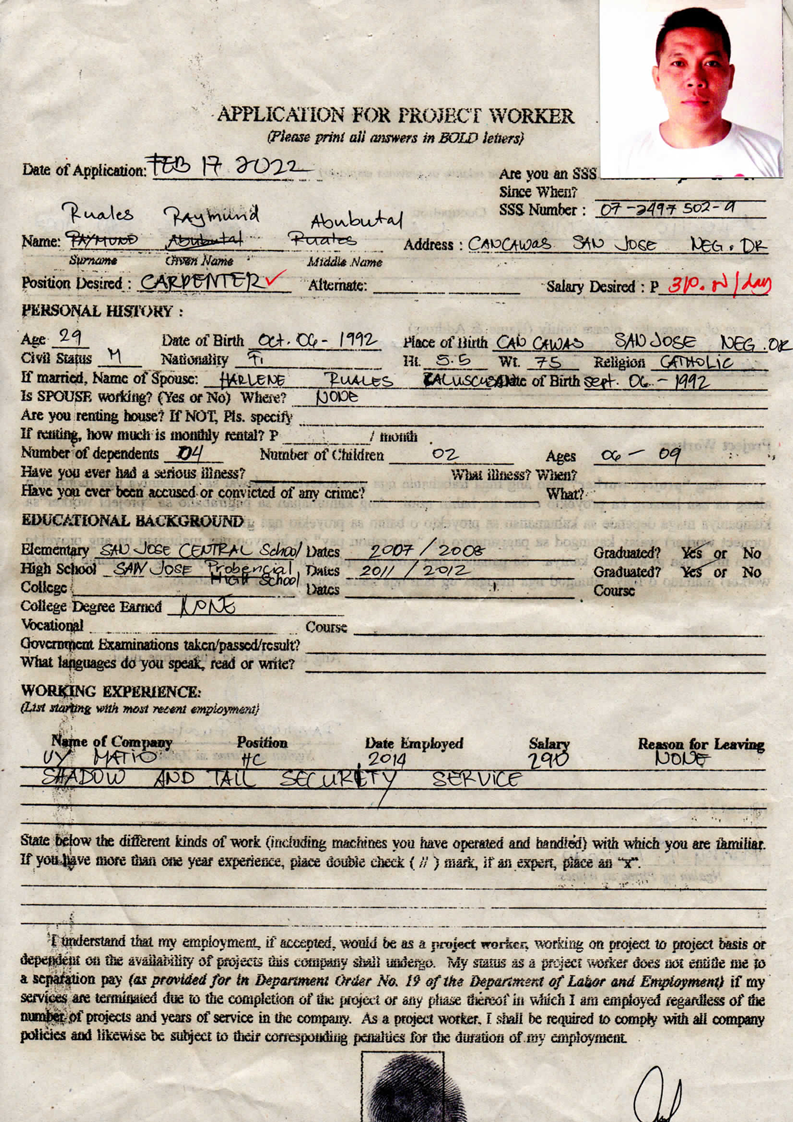 APPLICATION FOR PROJECT WORKER
(Please print all answers in BOLD letters)
Date of Application: FEB 17 2022
Are you an SSS
Since When?
SSS Number : 07-2497502-9
Ruales Raymund Abubutal
Name: RAYMUND Abubutal Ruales Address : CANCAWAS SAN JOSE NEG. OR
Surname Given Name Middle Name
Position Desired : CARPENTER ✓ Alternate: Salary Desired : P 310.00/day
PERSONAL HISTORY :
Age 29 Date of Birth Oct. 06 - 1992 Place of Birth CAN CAWAS SAN JOSE NEG. OR
Civil Status M Nationality Fi Ht. 5.5 Wt. 75 Religion CATHOLIC
If married, Name of Spouse: HARLENE RUALES Date of Birth Sept. 06 - 1992
Is SPOUSE working? (Yes or No) Where? NONE
Are you renting house? If NOT, Pls. specify
If renting, how much is monthly rental? P / month
Number of dependents 04 Number of Children 02 Ages 06 - 09
Have you ever had a serious illness? What illness? When?
Have you ever been accused or convicted of any crime? What?
EDUCATIONAL BACKGROUND
Elementary SAN JOSE CENTRAL School Dates 2007 / 2008 Graduated? Yes or No
High School SAN JOSE Probencial High School Dates 2011 / 2012 Graduated? Yes or No
College Dates Course
College Degree Earned NONE
Vocational Course
Government Examinations taken/passed/result?
What languages do you speak, read or write?
WORKING EXPERIENCE:
(List starting with most recent employment)
Name of Company Position Date Employed Salary Reason for Leaving
UY MATIO HC 2014 290 NONE
SHADOW AND TAIL SECURITY SERVICE
State below the different kinds of work (including machines you have operated and handled) with which you are familiar.
If you have more than one year experience, place double check ( // ) mark, if an expert, place an "x".
I understand that my employment, if accepted, would be as a project worker, working on project to project basis or
dependent on the availability of projects this company shall undergo. My status as a project worker does not entitle me to
a separation pay (as provided for in Department Order No. 19 of the Department of Labor and Employment) if my
services are terminated due to the completion of the project or any phase thereof in which I am employed regardless of the
number of projects and years of service in the company. As a project worker, I shall be required to comply with all company
policies and likewise be subject to their corresponding penalties for the duration of my employment.